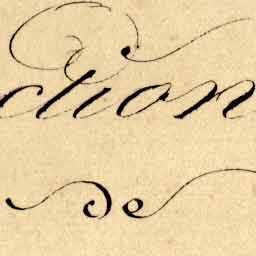 ction
de